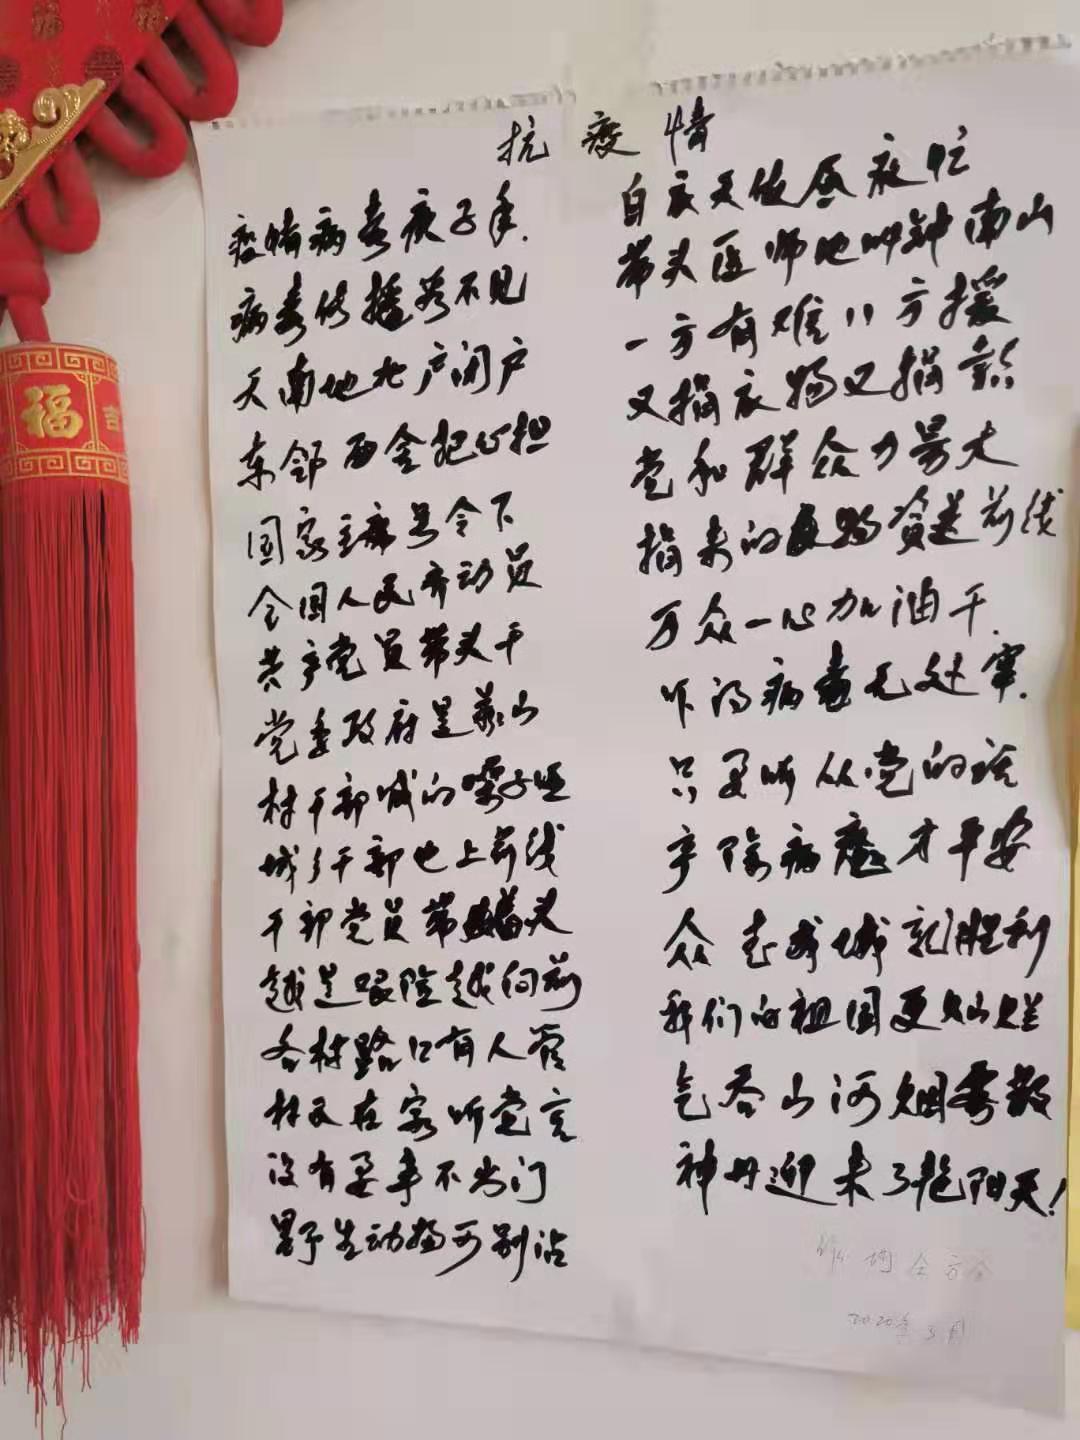 抗疫情
疫情病毒庚子年.
病毒传播看不见
天南地北户闭户
东邻西舍把心担
国家主席号令下
全国人民齐动员
共产党员带头干
党委政府是靠山
村干部喊的嗓子哑
城乡干部也上前线
干部党员带着头
越是艰险越向前
各村路口有人管
村民在家听党言
没有要事不出门
野生动物可别沾
白衣天使昼夜忙
带头医师他叫钟南山
一方有难八方援
又捐衣物又捐款
党和群众力量大
捐来的物资送前线
万众一心加油干.
吓的病毒无处窜.
只要听从党的话
除病魔才平安
众志成城就胜利
我们的祖国更灿烂
气吞山河烟雾散
神丹迎来了艳阳天!
2020年3月
福
吉